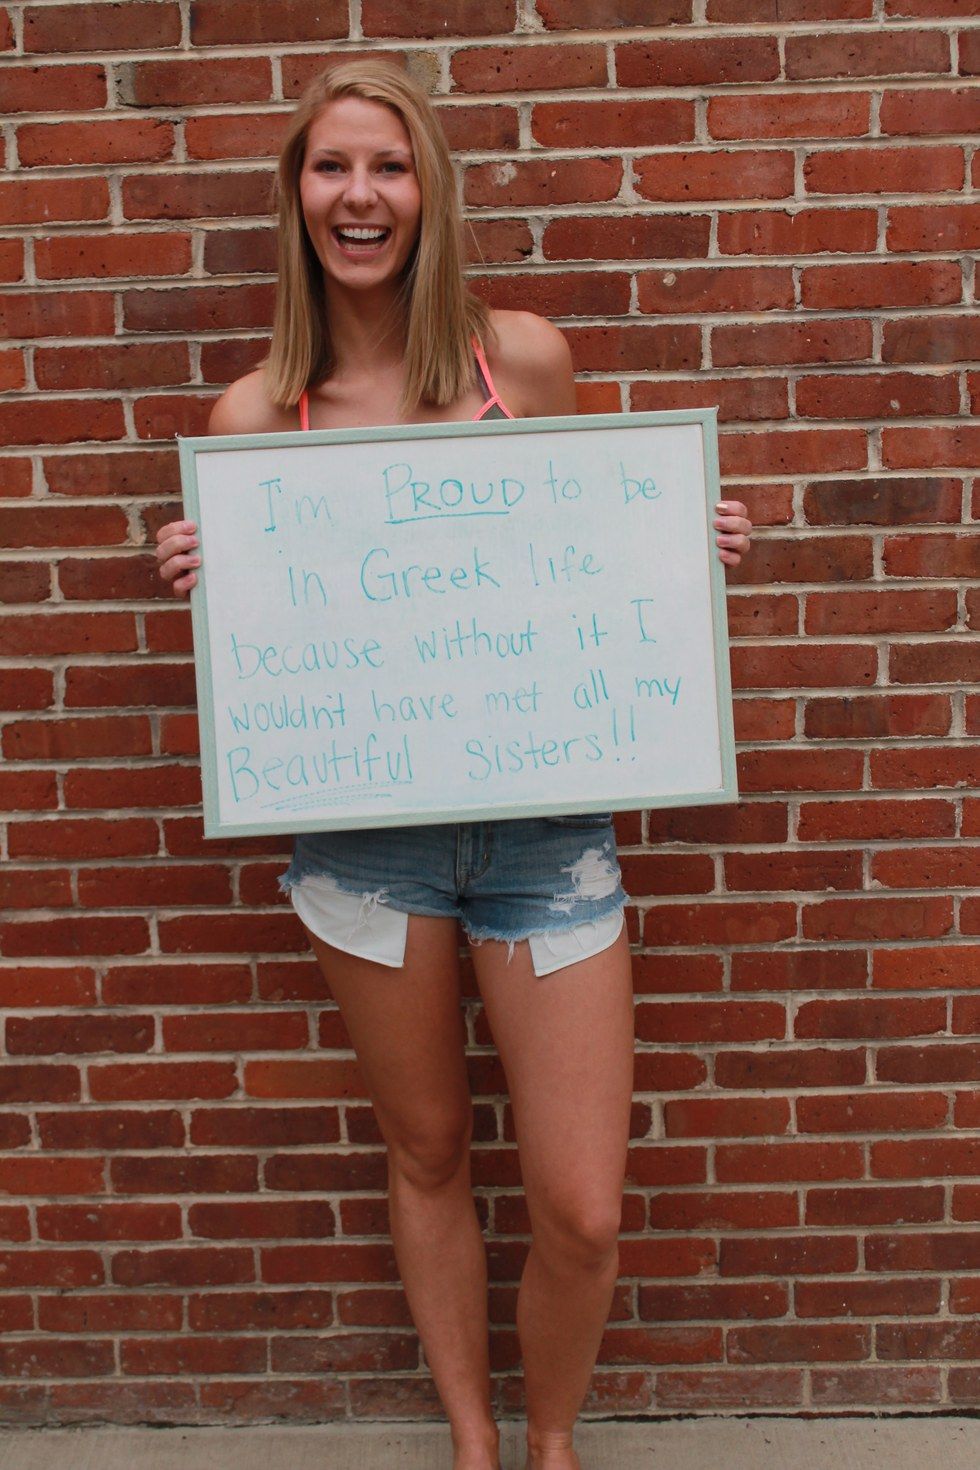 I'm PROUD to be
in Greek life
because without it I
wouldn't have met all my
Beautiful sisters!!